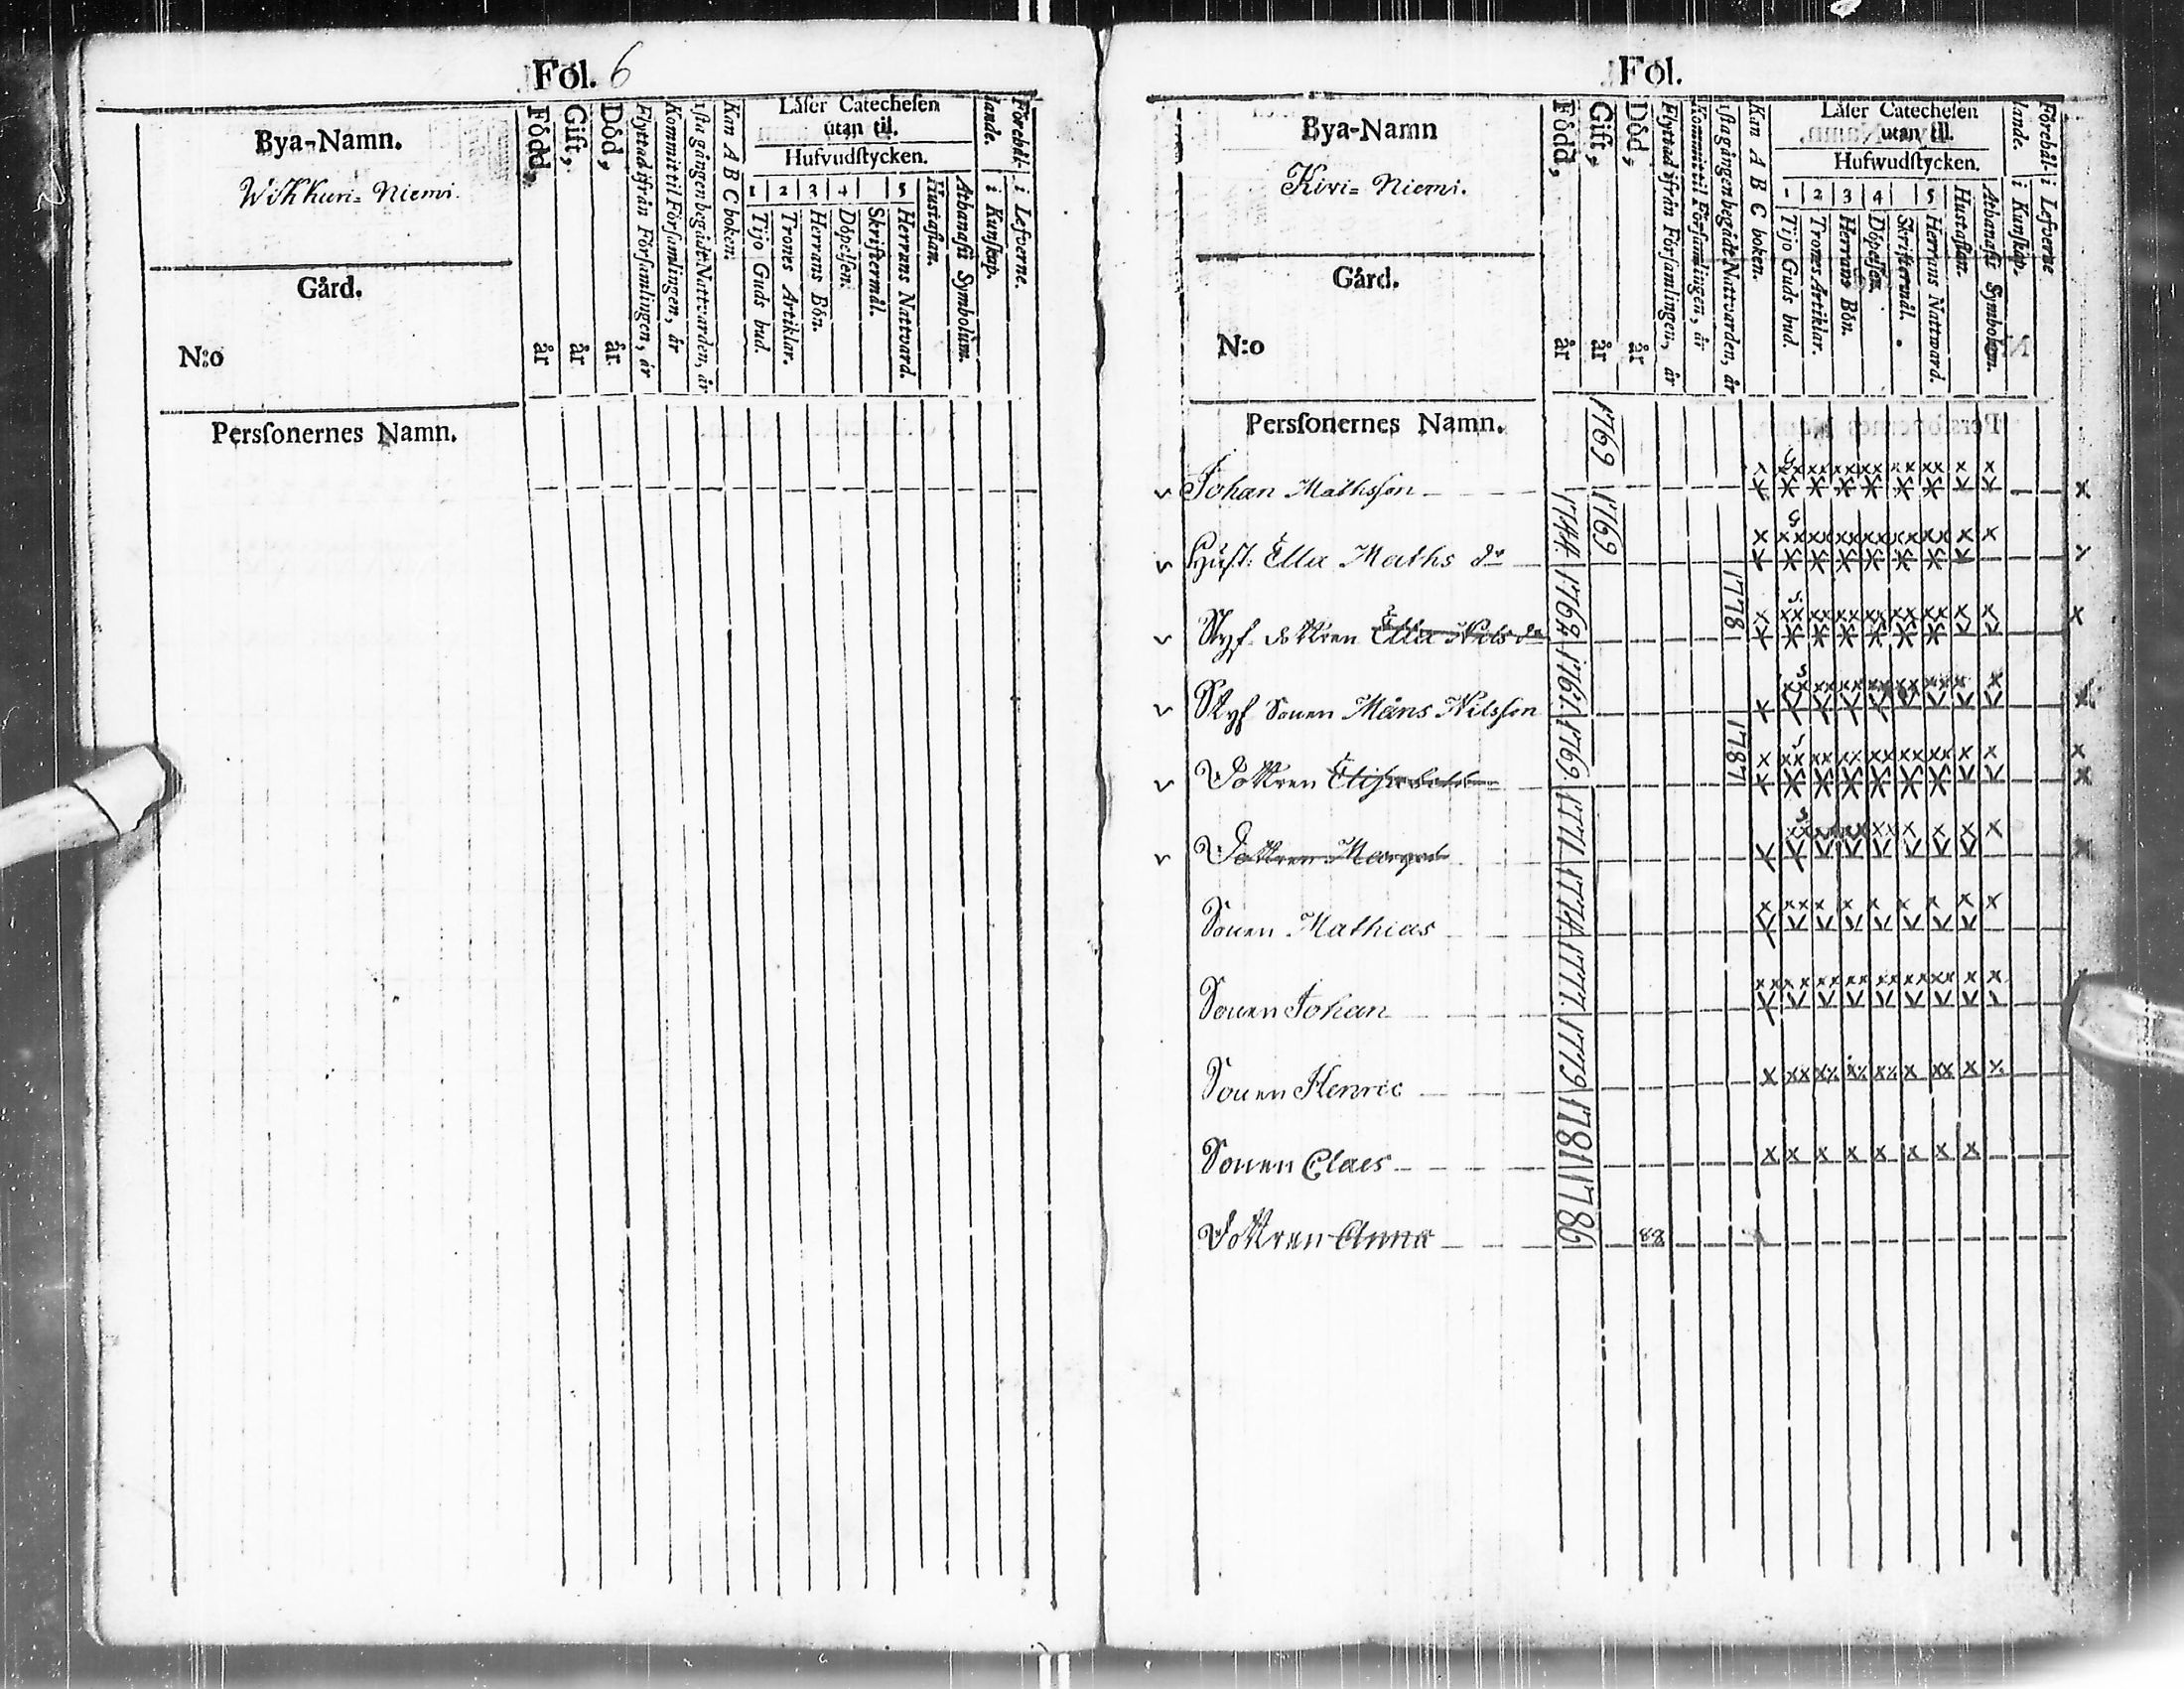 Fol. 6
Bya-Namn.
Wikkuri-Niemi.
Gård.
N:o
Persſonernes Namn.
Född, år
Gift, år
Död, år
Flyttad ifrån Förſamlingen, år
Kommit til Förſamlingen, år
1ſta gången begådt Nattvarden, år
Kan A B C boken.
Låſer Catecheſen
utan til.
Hufvudſtycken.
1 2 3 4 5
Tijo Guds bud.
Trones Artiklar.
Herrans Bön.
Döpelſen.
Skriftermål.
Herrans Nattvard.
Huſtaflan.
Athanaſii Symbolum.
Förehål-
lande.
i Kunſkap.
i Lefverne.
Fol.
Bya-Namn
Kivi-Niemi.
Gård.
N:o
Persſonernes Namn.
Född, år
Gift, år
Död, år
Flyttad ifrån Förſamlingen, år
Kommit til Förſamlingen, år
1ſta gången begådt Nattvarden, år
Kan A B C boken.
Låſer Catecheſen
utan til.
Hufwudſtycken.
1 2 3 4 5
Tijo Guds bud.
Trones Artiklar.
Herrans Bön.
Döpelſen.
Skriftermål.
Herrans Nattward.
Huſtaflan.
Athanaſii Symbolum.
Förehål-
lande.
i Kunſkap.
i Lefverne
Johan Mathsſon 1769
Huſt: Ella Maths dr 1744 1769
Styf dottren Ella Nils dr 1762 1778
Styf Sonen Måns Nilsſon 1767
Dottren Eliſabeth 1769 1787
Dottren Margret 1771
Sonen Mathias 1774
Sonen Johan 1777
Sonen Henric 1779
Sonen Claes 1781
Dottren Anna 1786 88